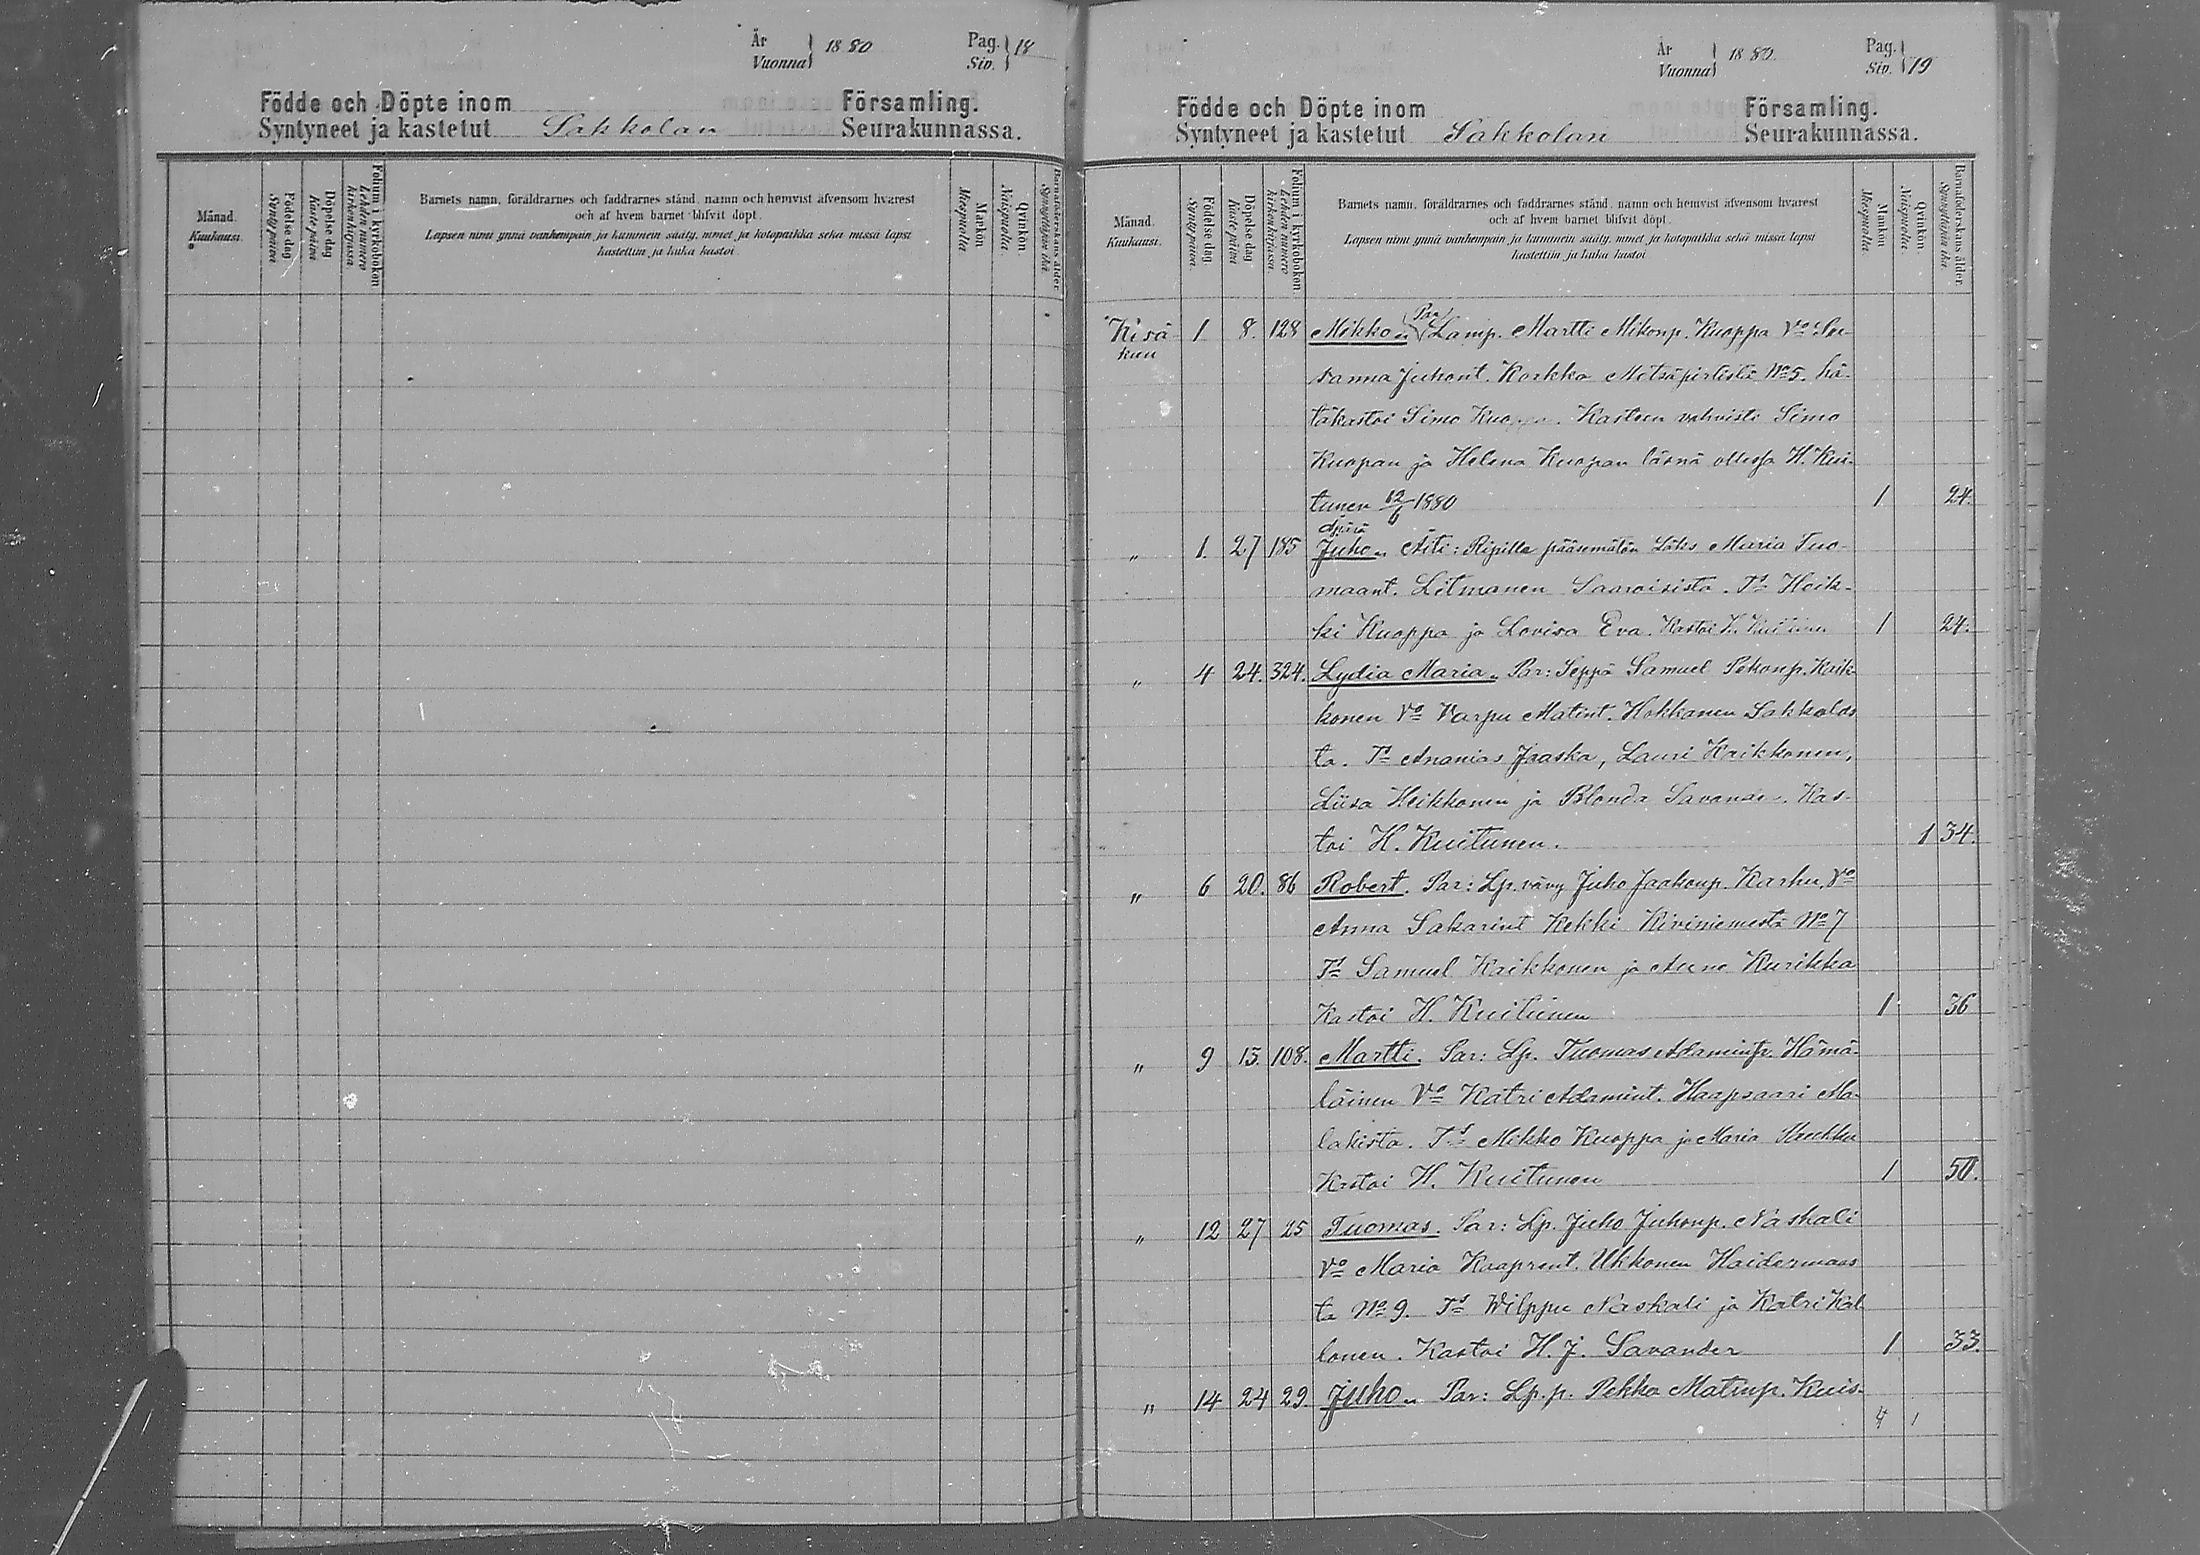 År
Vuonna
1880
Pag.
Siv.
18
Födde och Döpte inom Församling.
Syntyneet ja kastetut Sakkolan Seurakunnassa.
Månad.
Kuukausi.
Födelse dag
Synty päivä
Döpelse dag
Kaste päivä
Folium i kyrkoboken
Lehden numero
kirkonkirjassa
Barnets namn, föräldrarnes och faddrarnes stånd, namn och hemvist äfvensom hvarest
och af hvem barnet blifvit döpt.
Lapsen nimi ynnä vanhempain ja kummein sääty, nimet ja kotopaikka sekä missä lapsi
kastettiin ja kuka kastoi.
Mankön
Miespuolia.
Qvinkön.
Naispuolia.
Barnaföderskans ålder
Synnyttäjän ikä
År
Vuonna
1880
Pag.
Siv.
19
Födde och Döpte inom Församling.
Syntyneet ja kastetut Sakkolan Seurakunnassa.
Månad.
Kuukausi.
Födelse dag
Synty päivä
Döpelse dag
Kaste päivä
Folium i kyrkoboken
Lehden numero
kirkonkirjassa
Barnets namn, föräldrarnes och faddrarnes stånd, namn och hemvist äfvensom hvarest
och af hvem barnet blifvit döpt.
Lapsen nimi ynnä vanhempain ja kummein sääty, nimet ja kotopaikka sekä missä lapsi
kastettiin ja kuka kastoi
Mankön
Miespuolia.
Qvinkön.
Naispuolia.
Barnaföderskans ålder
Synnyttäjän ikä
Kesä 1 8. 128 Mikko (Par) Lamp. Martti Mikonp. Kuoppa Vo Su-
kuu
sanna Juhont. Korkka Metsäpirtistä No 5. hä-
täkastoi Simo Kuoppa. Kasteen vahvisti Simo
Kuopan ja Helena Kuopan läsnä ollessa H. Kui-
tunen 12/6 1880 1 24.
" 1. 27 185 Juho Äiti: Ripille pääsemätön Maria Tuo-
maant. Litmanen Saaroisista. Ts Heik-
ki Kuoppa ja Lovisa Eva. Kastoi H. Kuitunen 1 24.
" 4 24. 324. Lydia Maria. Par: Seppä Samuel Pekonp. Kaik-
konen Vo Varpu Matint. Hokkanen Sakkolas
ta. Ts Ananias Jaaska, Lauri Kaikkonen,
Liisa Heikkonen ja Blonda Savander. Kas-
toi H. Kuitunen. 1 34.
" 6 20. 86 Robert. Par: Lp. vävy Juho Jaakonp. Karhu, Vo
Anna Sakarint Kekki Kiviniemestä No 7
Ts Samuel Kaikkonen ja Kurikka
Kastoi H. Kuitunen 1 36
" 9 13. 108. Martti. Par: Lp. Tuomas Adaminp. Hämä-
läinen Vo Katri Adamint. Haapsaari
lakista. Ts Mikko Kuoppa ja Maria
Kastoi H. Kuitunen 1 50.
" 12 27 25 Tuomas. Par: Lp. Juho Juhonp. Naskali
Vo Maria Kaaprent. Ukkonen Haidermaas
ta No 9. Ts Wilppu Naskali ja Katri Kal
lonen. Kastoi H. J. Savander 1 33.
" 14 24 29. Juho Par: Lp. p. Pekka Matinp. Kuis-
4 1